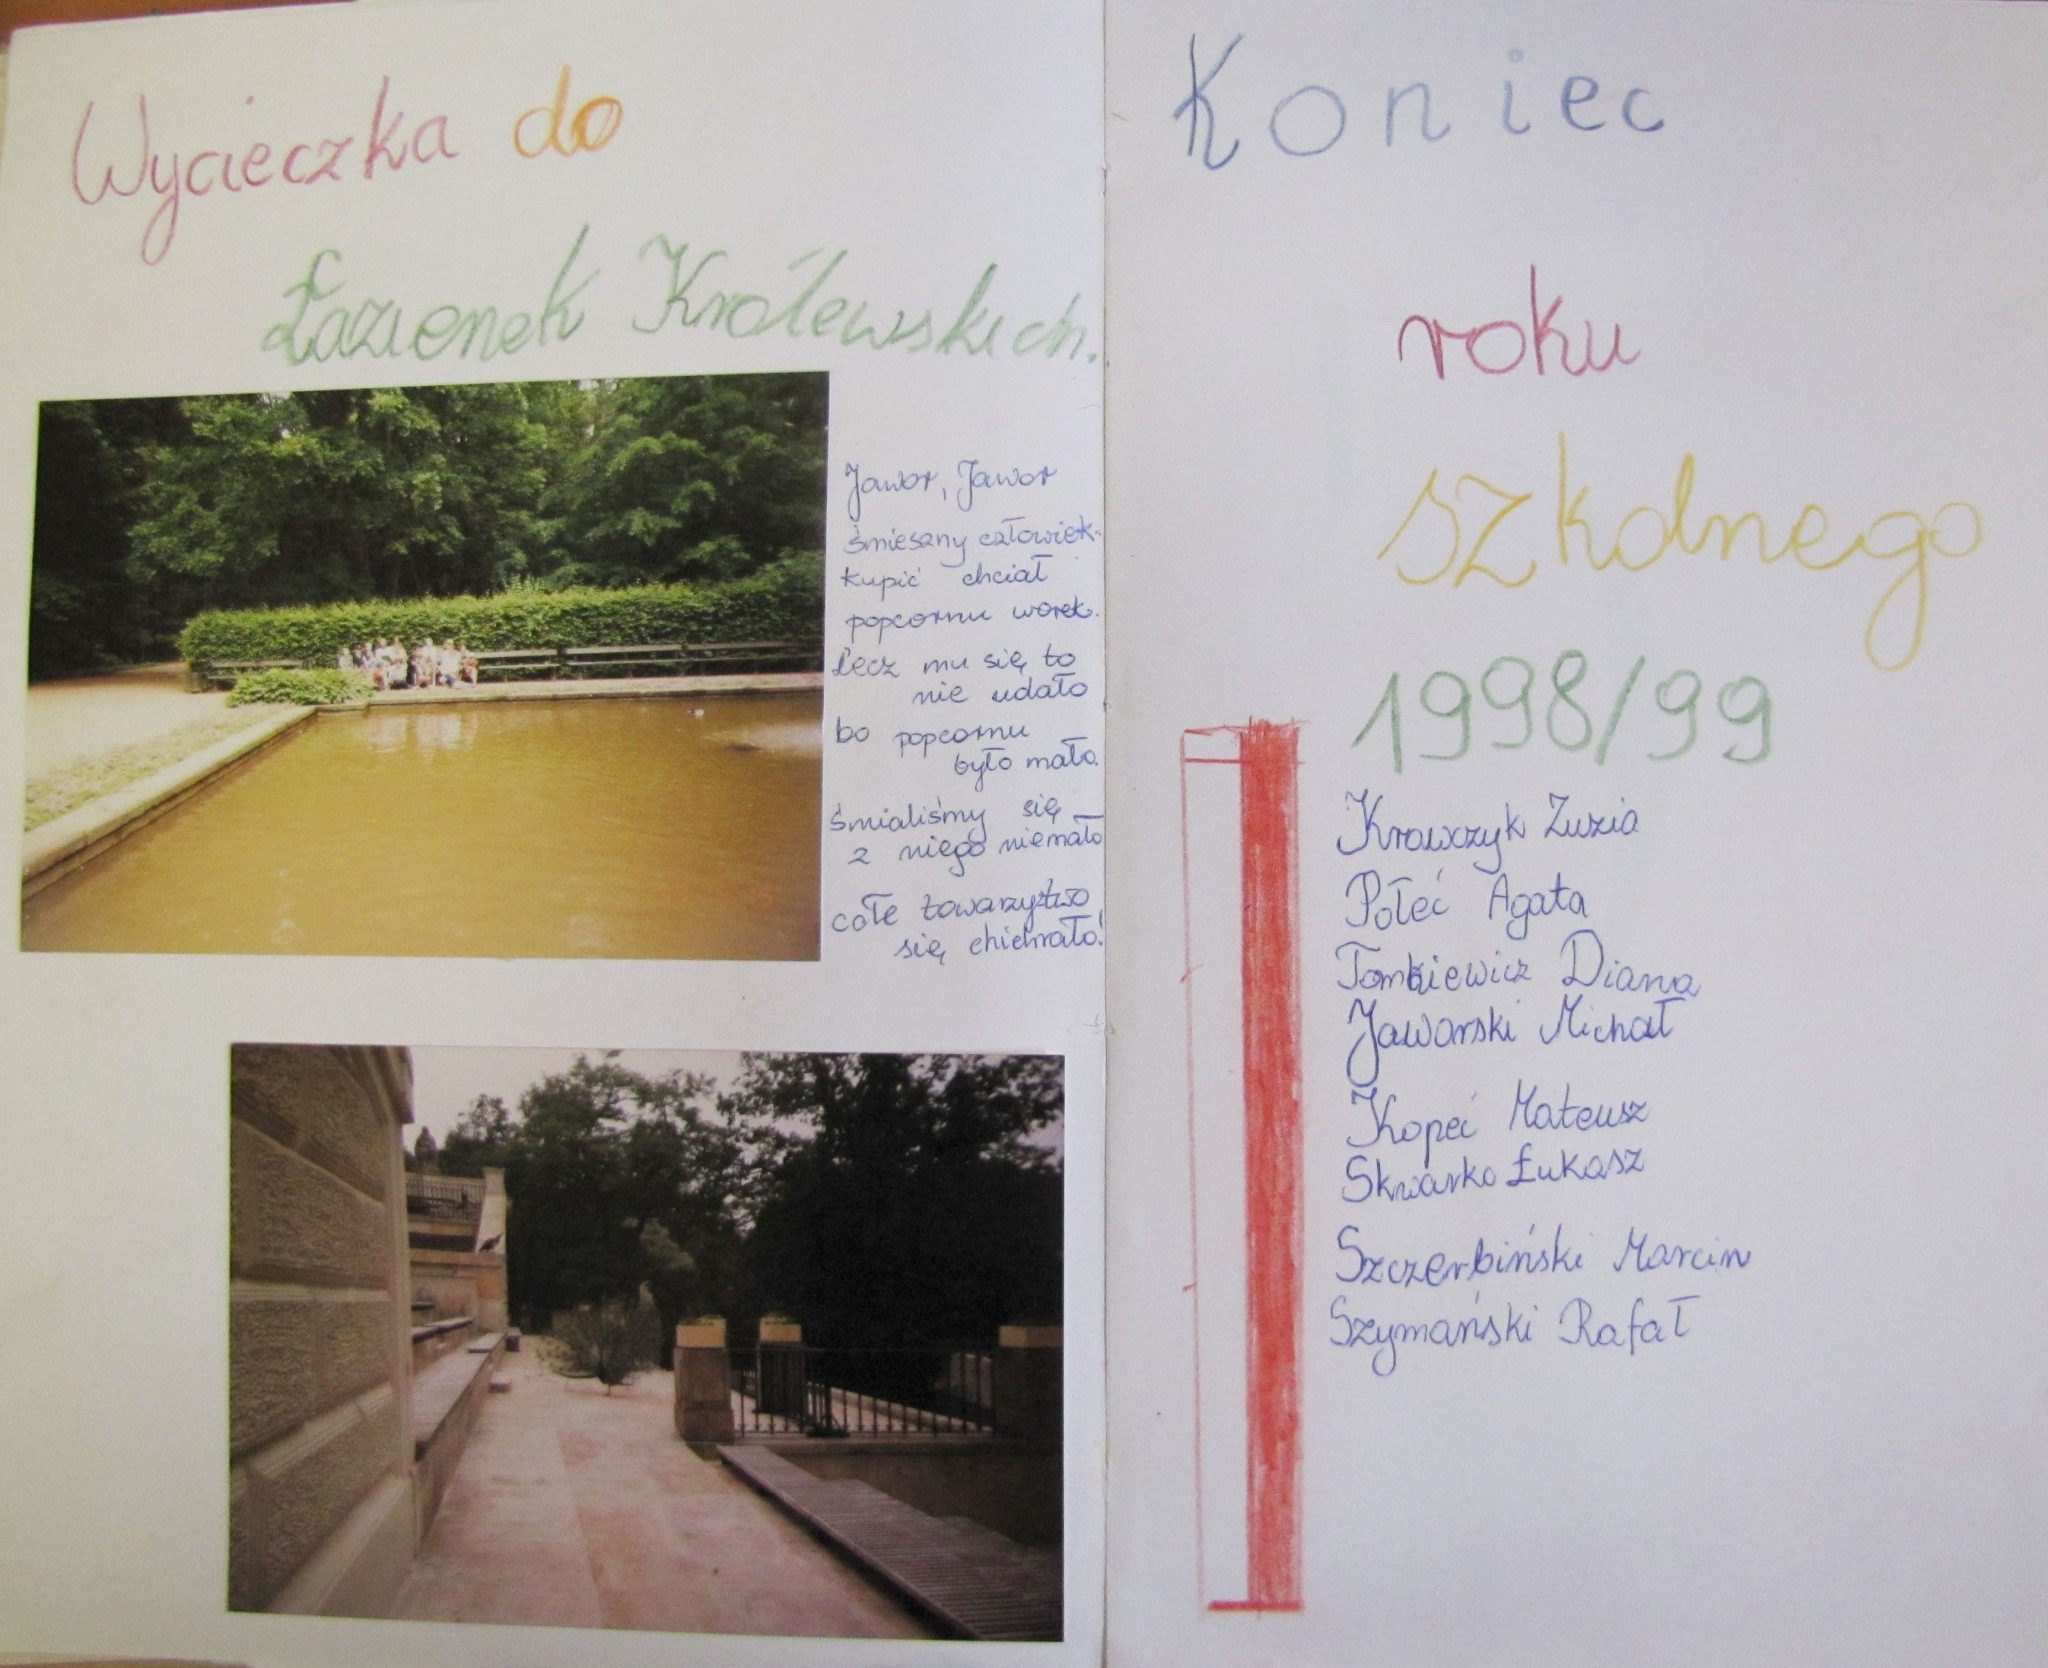 Wycieczka do
Łazienek Królewskich.
Jawor, Jawor
śmieszny człowiek-
kupić chciał
popcornu worek.
lecz mu się to
nie udało
bo popcornu
było mało.
śmialiśmy się
z niego niemało
całe towarzytwo
się chichrało!
Koniec
roku
szkolnego
1998/99
Krawczyk Zuzia
Połeć Agata
Tomkiewicz Diana
Jaworski Michał
Kopeć Mateusz
Skwarko Łukasz
Szczerbiński Marcin
Szymański Rafał